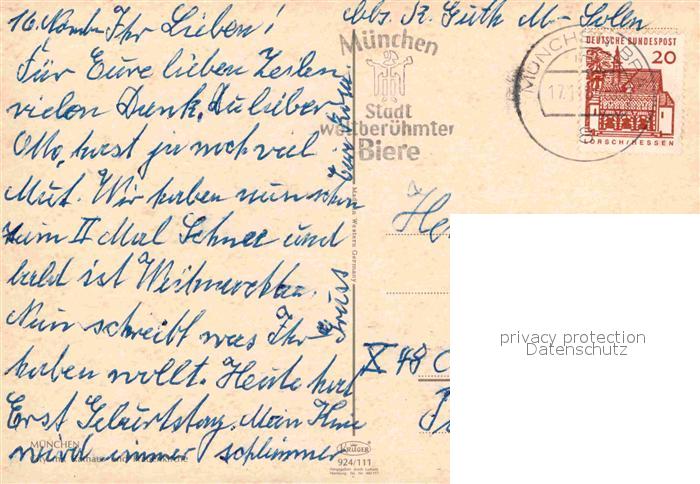 16. Novbr Ihr Lieben!
Für Eure lieben Zeilen
vielen Dank. Du lieber
Otto, hast ja noch viel
Mut. Wir haben nun schon
zum II Mal Schnee und
bald ist Weihnachten.
Nun schreibt was Ihr
haben wollt. Heute hat
Erst Geburtstag. Mein Knie
wird immer schlimmer
Gruss
Eure
Abs. R. Guth M-Solln
München
Stadt
weltberühmter
Biere
MÜNCHEN
17.11
DEUTSCHE BUNDESPOST
20
LORSCH/HESSEN
Made in Western Germany
X 48
MÜNCHEN
KRÜGER
924/111
privacy protection
Datenschutz